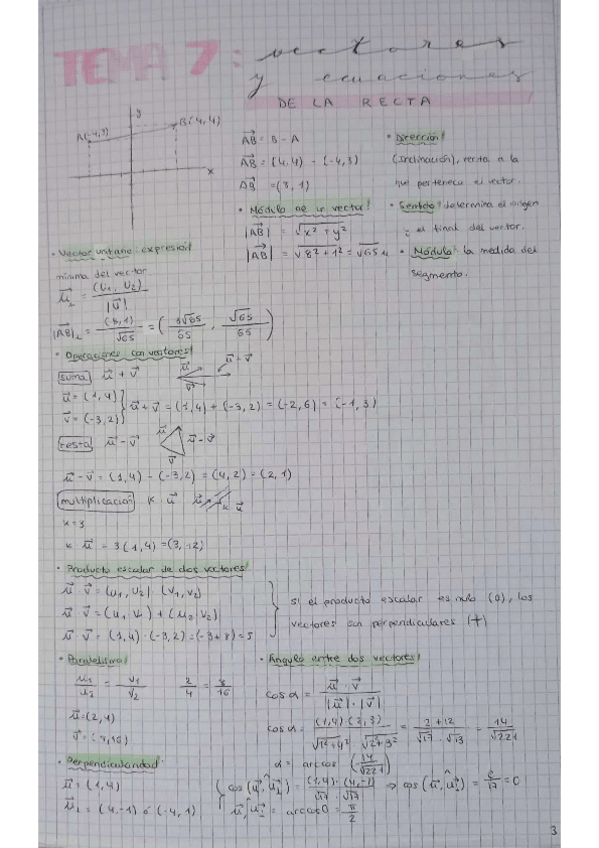 TEMA 7: vectores
y ecuaciones
DE LA RECTA
y
B(4,4)
A(-4,3)
x
AB = B - A
AB = (4,4) - (-4,3)
AB = (3,1)
• Módulo de un vector!
|AB| = √x² + y²
|AB| = √8² + 1² = √65 u
• Dirección!
(inclinación), recta a la
que pertenece el vector.
• Sentido! determina el origen
y el final del vector.
• Módulo: la medida del
segmento.
• Vector unitario: expresión
mínima del vector
(u₁, u₂)
|v|
(8,1)
√65
= (8√65/65, √65/65)
• Operaciones con vectores!
suma u + v
u - v
u = (1,4)
v = (-3,2)
u + v = (1,4) + (-3,2) = (-2,6) = (-1,3)
resta u - v
u - v
u - v = (1,4) - (-3,2) = (4,2) = (2,1)
multiplicación k · u
k = 3
k · u = 3(1,4) = (3,12)
• Producto escalar de dos vectores!
u · v = (u₁, u₂) · (v₁, v₂)
u · v = (u₁ v₁) + (u₂ v₂)
u · v = (1,4) · (-3,2) = (-3+8) = 5
si el producto escalar es nulo (0), los
vectores son perpendiculares (+)
• Paralelismo!
u₁/u₂ = v₁/v₂ 2/4 = 8/16
u = (2,4)
• Ángulo entre dos vectores!
cos α = u · v / |u| · |v|
cos α = (1,4)·(2,3) / √1²+4² · √2²+3² = 2+12 / √17 · √13 = 14/√221
α = arccos (14/√221)
• Perpendicularidad:
u = (1,4)
u⊥ = (4,-1) ó (-4,1)
cos (u, u⊥) = (1,4)·(4,-1) / √17 · √17 ⇒ cos (u, u⊥) = 0/17 = 0
u, u⊥ = arccos 0 = π/2
3